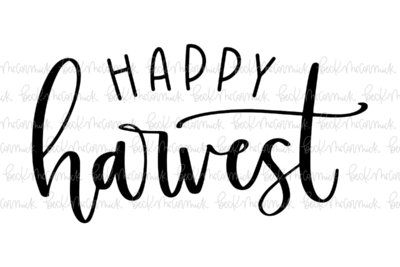 HAPPY
harvest